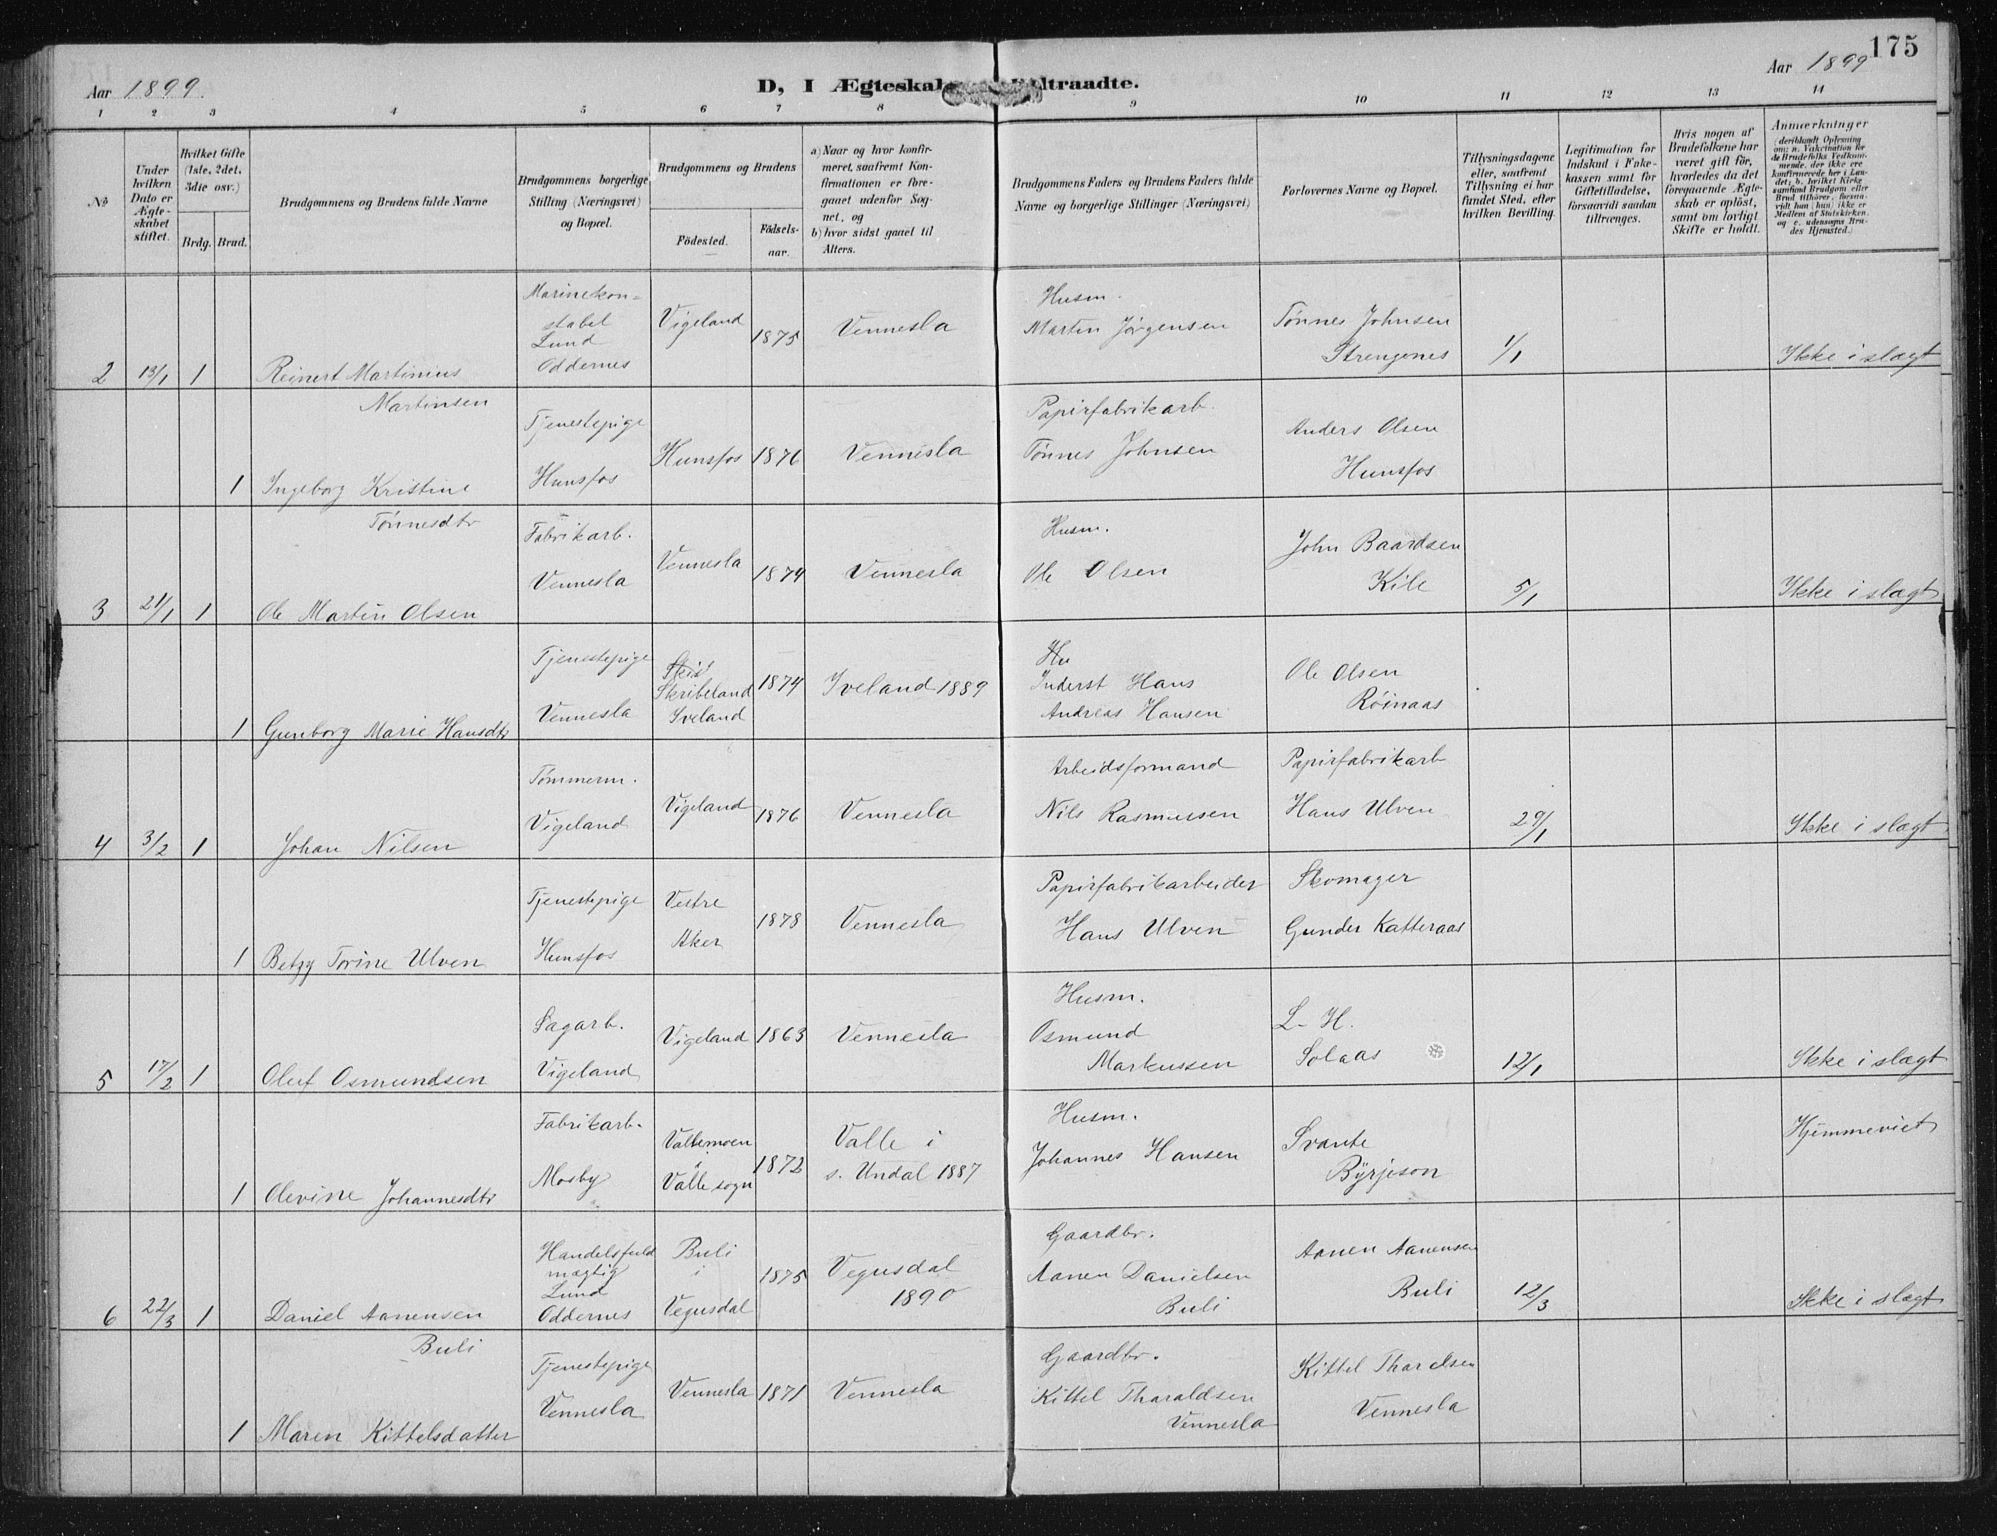 175
Aar 1899.
D, I Ægteskab
dtraadte.
Aar 1899
1 2 3 4 5 6 7 8 9 10 11 12 13 14
№
Under hvilken Dato er Ægteskabet stiftet.
Hvilket Gifte (1ste, 2det, 3die osv.)
Brdg. Brud.
Brudgommens og Brudens fulde Navne
Brudgommens borgerlige Stilling (Næringsvei) og Bopæl.
Brudgommens og Brudens
Födested.
Födselsaar.
a) Naar og hvor konfirmeret, saafremt Konfirmationen er foregaaet udenfor Sognet, og
b) hvor sidst gaaet til Alters.
Brudgommens Faders og Brudens Faders fulde Navne og borgerlige Stillinger (Næringsvei)
Forlovernes Navne og Bopæl.
Tillysningsdagene eller, saafremt Tillysning ei har fundet Sted, efter hvilken Bevilling.
Legitimation for Indskud i Enkekassen samt for Giftetilladelse, forsaavidt saadan tiltrænges.
Hvis nogen af Brudefolkene har været gift för, hvorledes da det foregaaende Ægteskab er oplöst, samt om lovligt Skifte er holdt.
Anmærkninger (deriblandt Oplysning om: a. Vakcination for de Brudefolks Vedkommende, der ikke ere konfirmerede her i Landet; b. hvilket Kirkesamfund Brudgom eller Brud tilhörer, forsaavidt han (hun) ikke er Medlem af Statskirken, og c. udensogns Brudes Hjemsted.)
2 13/1 1 Reinert Martinius Martinsen
Marinekonstabel Lund Oddernes
Vigeland 1875 Vennesla
Husm. Martin Jørgensen
Tønnes Johnsen Strengenes
1/1
Ikke i slægt
1 Ingeborg Kristine Tønnesdtr
Tjenestepige Hunsfos
Hunsfos 1876 Vennesla
Papirfabrikarb. Tønnes Johnsen
Anders Olsen Hunsfos
3 21/1 1 Ole Martin Olsen
Fabrikarb. Vennesla
Vennesla 1874 Vennesla
Husm. Ole Olsen
John Baardsen Kile
5/1
Ikke i slægt
1 Gunborg Marie Hansdtr
Tjenestepige Vennesla
Skribeland Iveland 1874 Iveland 1889
Hu
Inderst Hans Andreas Hansen
Ole Olsen Röinaas
4 3/2 1 Johan Nilsen
Tømmerm. Vigeland
Vigeland 1876 Vennesla
Arbeidsformand Nils Rasmussen
Papirfabrikarb Hans Ulven
29/1
Ikke i slægt
1 Betzy Torine Ulven
Tjenestepige Hunsfos
Vestre Aker 1878 Vennesla
Papirfabrikarbeider Hans Ulven
Skomager Gunder Katteraas
5 17/2 1 Oluf Osmundsen
Sagarb. Vigeland
Vigeland 1863 Vennesla
Husm. Osmund Markussen
L. H. Solaas
12/1
Ikke i slægt
1 Olevine Johannesdtr
Fabrikarb. Mosby
Vallemoen i Valle sogn 1872 Valle i s. Undal 1887
Husm. Johannes Hansen
Svante Byrjeson
Hjemmeviet
6 22/3 1 Daniel Aanensen Buli
Handelsfuldmægtig Lund Oddernes
Buli i Vegusdal 1875 Vegusdal 1890
Gaardbr. Aanen Danielsen Buli
Aanen Aanensen Buli
12/3
Ikke i slægt
1 Maren Kittelsdatter
Tjenestepige Vennesla
Vennesla 1871 Vennesla
Gaardbr. Kittel Tharaldsen Vennesla
Kittel Tharelsen Vennesla